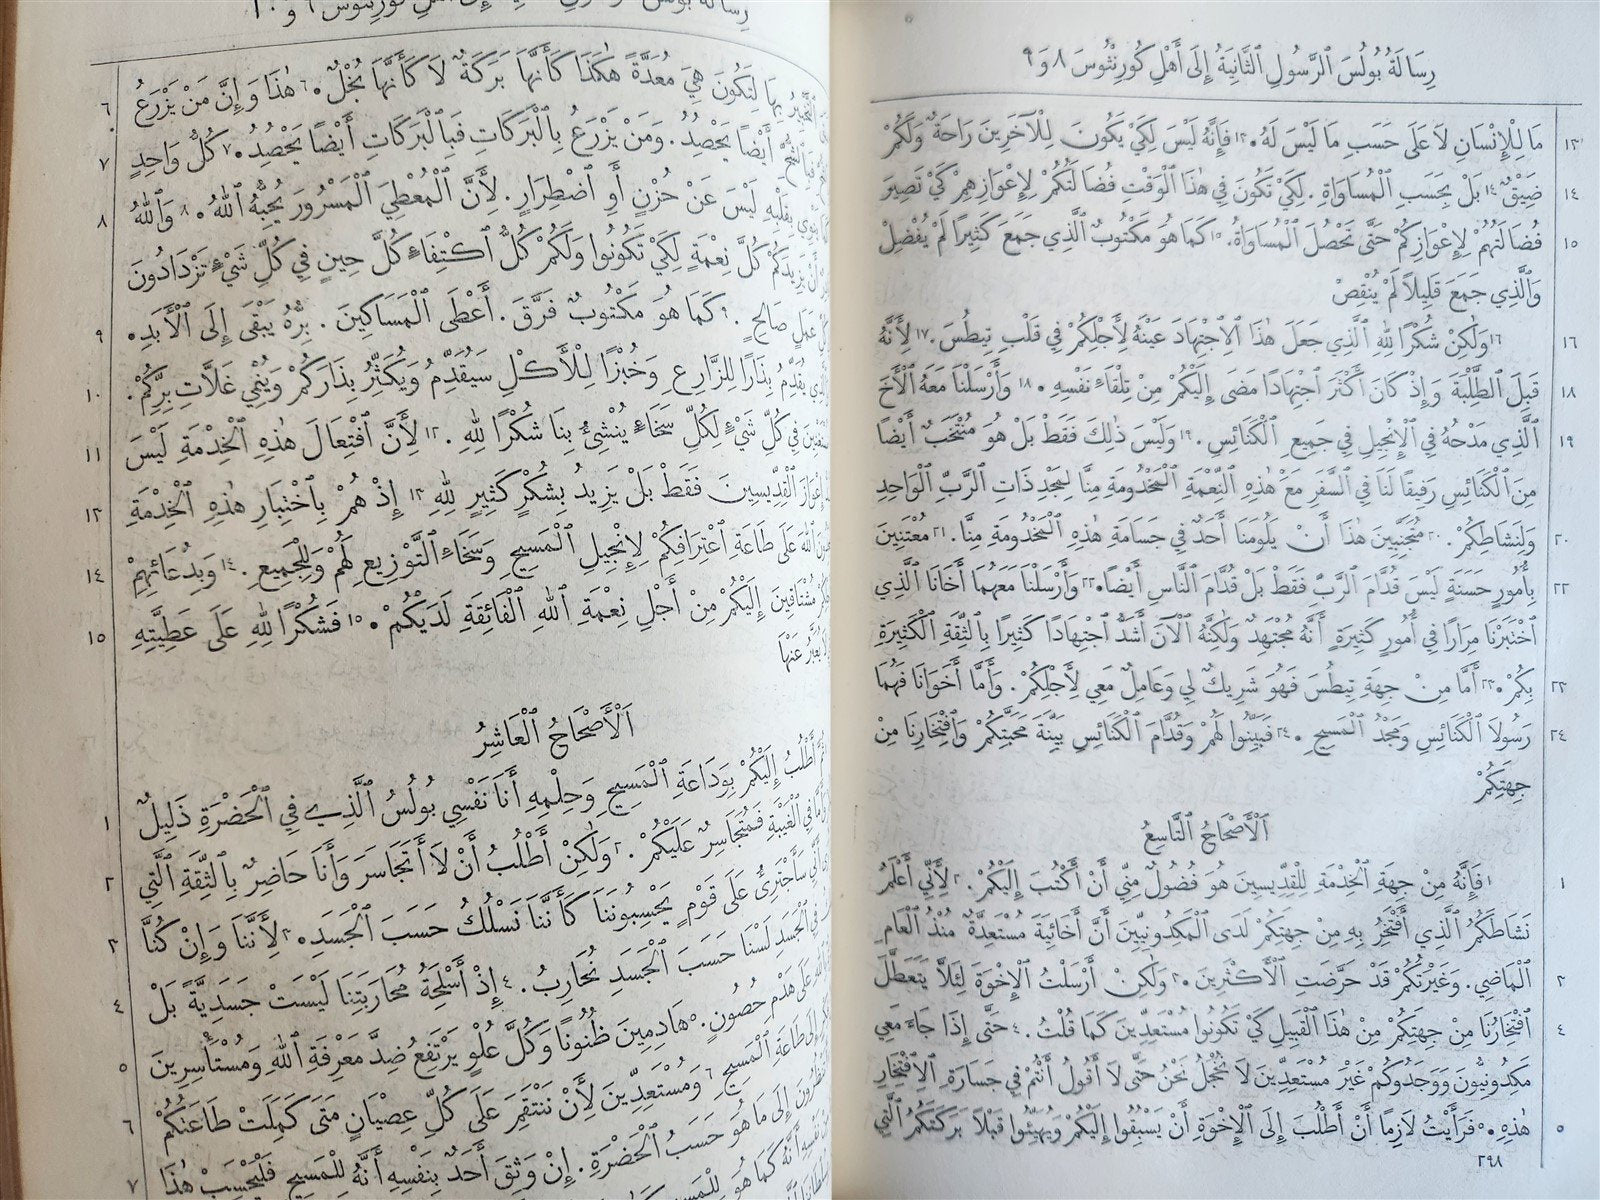 رِسَالَةُ بُولُسَ ٱلرَّسُولِ ٱلثَّانِيَةُ إِلَى أَهْلِ كُورِنْثُوسَ ٨ وَ ٩
١٣ مَا لِلْإِنْسَانِ لَا عَلَى حَسَبِ مَا لَيْسَ لَهُ. ١٣ فَإِنَّهُ لَيْسَ لِكَيْ يَكُونَ لِلْآخَرِينَ رَاحَةٌ وَلَكُمْ
١٤ ضِيْقٌ ١٤ بَلْ بِحَسَبِ ٱلْمُسَاوَاةِ. لِكَيْ تَكُونَ فِي هٰذَا ٱلْوَقْتِ فُضَالَتُكُمْ لِإِعْوَازِهِمْ كَيْ تَصِيرَ
١٥ فُضَالَتُهُمْ لِإِعْوَازِكُمْ حَتَّى تَحْصُلَ ٱلْمُسَاوَاةُ. ١٥ كَمَا هُوَ مَكْتُوبٌ ٱلَّذِي جَمَعَ كَثِيرًا لَمْ يُفْضِلْ
وَٱلَّذِي جَمَعَ قَلِيلًا لَمْ يُنْقِصْ
١٦ ١٦ وَلٰكِنْ شُكْرًا لِلهِ ٱلَّذِي جَعَلَ هٰذَا ٱلِٱجْتِهَادَ عَيْنَهُ لِأَجْلِكُمْ فِي قَلْبِ تِيطُسَ. ١٧ لِأَنَّهُ
١٨ قَبِلَ ٱلطَّلِبَةَ وَإِذْ كَانَ أَكْثَرَ ٱجْتِهَادًا مَضَى إِلَيْكُمْ مِنْ تِلْقَاءِ نَفْسِهِ. ١٨ وَأَرْسَلْنَا مَعَهُ ٱلْأَخَ
١٩ ٱلَّذِي مَدْحُهُ فِي ٱلْإِنْجِيلِ فِي جَمِيعِ ٱلْكَنَائِسِ. ١٩ وَلَيْسَ ذٰلِكَ فَقَطْ بَلْ هُوَ مُنْتَخَبٌ أَيْضًا
مِنَ ٱلْكَنَائِسِ رَفِيقًا لَنَا فِي ٱلسَّفَرِ مَعَ هٰذِهِ ٱلنِّعْمَةِ ٱلْمَخْدُومَةِ مِنَّا لِمَجْدِ ذَاتِ ٱلرَّبِّ ٱلْوَاحِدِ
٢٠ وَلِنَشَاطِكُمْ. ٢٠ مُتَجَنِّبِينَ هٰذَا أَنْ يَلُومَنَا أَحَدٌ فِي جَسَامَةِ هٰذِهِ ٱلْمَخْدُومَةِ مِنَّا. ٢١ مُعْتَنِينَ
٢٢ بِأُمُورٍ حَسَنَةٍ لَيْسَ قُدَّامَ ٱلرَّبِّ فَقَطْ بَلْ قُدَّامَ ٱلنَّاسِ أَيْضًا. ٢٢ وَأَرْسَلْنَا مَعَهُمَا أَخَانَا ٱلَّذِي
ٱخْتَبَرْنَا مِرَارًا فِي أُمُورٍ كَثِيرَةٍ أَنَّهُ مُجْتَهِدٌ وَلٰكِنَّهُ ٱلْآنَ أَشَدُّ ٱجْتِهَادًا كَثِيرًا بِٱلثِّقَةِ ٱلْكَثِيرَةِ
٢٣ بِكُمْ. ٢٣ أَمَّا مِنْ جِهَةِ تِيطُسَ فَهُوَ شَرِيكٌ لِي وَعَامِلٌ مَعِي لِأَجْلِكُمْ. وَأَمَّا أَخَوَانَا فَهُمَا
٢٤ رَسُولَا ٱلْكَنَائِسِ وَمَجْدُ ٱلْمَسِيحِ. ٢٤ فَبَيِّنُوا لَهُمْ وَقُدَّامَ ٱلْكَنَائِسِ بَيِّنَةَ مَحَبَّتِكُمْ وَٱفْتِخَارِنَا مِنْ
جِهَتِكُمْ
اَلْأَصْحَاحُ ٱلتَّاسِعُ
١ ١ فَإِنَّهُ مِنْ جِهَةِ ٱلْخِدْمَةِ لِلْقِدِّيسِينَ هُوَ فُضُولٌ مِنِّي أَنْ أَكْتُبَ إِلَيْكُمْ. ٢ لِأَنِّي أَعْلَمُ
نَشَاطَكُمُ ٱلَّذِي أَفْتَخِرُ بِهِ مِنْ جِهَتِكُمْ لَدَى ٱلْمَكِدُونِيِّينَ أَنَّ أَخَائِيَةَ مُسْتَعِدَّةٌ مُنْذُ ٱلْعَامِ
٣ ٱلْمَاضِي. وَغَيْرَتُكُمْ قَدْ حَرَّضَتِ ٱلْأَكْثَرِينَ. ٣ وَلٰكِنْ أَرْسَلْتُ ٱلْإِخْوَةَ لِئَلَّا يَتَعَطَّلَ
٤ ٱفْتِخَارُنَا مِنْ جِهَتِكُمْ مِنْ هٰذَا ٱلْقَبِيلِ كَيْ تَكُونُوا مُسْتَعِدِّينَ كَمَا قُلْتُ. ٤ حَتَّى إِذَا جَاءَ مَعِي
مَكِدُونِيُّونَ وَوَجَدُوكُمْ غَيْرَ مُسْتَعِدِّينَ لَا نُخْجَلُ نَحْنُ حَتَّى لَا أَقُولُ أَنْتُمْ فِي جَسَارَةِ ٱلِٱفْتِخَارِ
٥ هٰذِهِ. ٥ فَرَأَيْتُ لَازِمًا أَنْ أَطْلُبَ إِلَى ٱلْإِخْوَةِ أَنْ يَسْبِقُوا إِلَيْكُمْ وَيُهَيِّئُوا قَبْلًا بَرَكَتَكُمُ ٱلَّتِي
٢٩٨
رِسَالَةُ بُولُسَ إِلَى أَهْلِ كُورِنْثُوسَ ٩ وَ ١٠
ٱلتَّخْبِيرُ بِهَا لِتَكُونَ هِيَ مُعَدَّةً هٰكَذَا كَأَنَّهَا بَرَكَةٌ لَا كَأَنَّهَا بُخْلٌ. ٦ هٰذَا وَإِنَّ مَنْ يَزْرَعُ ٦
أَيْضًا يَحْصُدُ. وَمَنْ يَزْرَعُ بِٱلْبَرَكَاتِ فَبِٱلْبَرَكَاتِ أَيْضًا يَحْصُدُ. ٧ كُلُّ وَاحِدٍ ٧
يَنْوِي بِقَلْبِهِ لَيْسَ عَنْ حُزْنٍ أَوِ ٱضْطِرَارٍ. لِأَنَّ ٱلْمُعْطِيَ ٱلْمَسْرُورَ يُحِبُّهُ ٱللهُ. ٨ وَٱللهُ ٨
أَنْ يَزِيدَكُمْ كُلَّ نِعْمَةٍ لِكَيْ تَكُونُوا وَلَكُمْ كُلُّ ٱكْتِفَاءٍ كُلَّ حِينٍ فِي كُلِّ شَيْءٍ تَزْدَادُونَ
عَمَلٍ صَالِحٍ. ٩ كَمَا هُوَ مَكْتُوبٌ فَرَّقَ. أَعْطَى ٱلْمَسَاكِينَ. بِرُّهُ يَبْقَى إِلَى ٱلْأَبَدِ. ٩
يُقَدِّمُ بِذَارًا لِلزَّارِعِ وَخُبْزًا لِلْأَكْلِ سَيُقَدِّمُ وَيُكَثِّرُ بِذَارَكُمْ وَيُنْمِي غَلَّاتِ بِرِّكُمْ. ١٠
فِي كُلِّ شَيْءٍ لِكُلِّ سَخَاءٍ يُنْشِئُ بِنَا شُكْرًا لِلهِ. ١٢ لِأَنَّ ٱفْتِعَالَ هٰذِهِ ٱلْخِدْمَةِ لَيْسَ ١١
إِعْوَازَ ٱلْقِدِّيسِينَ فَقَطْ بَلْ يَزِيدُ بِشُكْرٍ كَثِيرٍ لِلهِ ١٣ إِذْ هُمْ بِٱخْتِبَارِ هٰذِهِ ٱلْخِدْمَةِ ١٣
ٱللهَ عَلَى طَاعَةِ ٱعْتِرَافِكُمْ لِإِنْجِيلِ ٱلْمَسِيحِ وَسَخَاءِ ٱلتَّوْزِيعِ لَهُمْ وَلِلْجَمِيعِ. ١٤ وَبِدُعَائِهِمْ ١٤
مُشْتَاقِينَ إِلَيْكُمْ مِنْ أَجْلِ نِعْمَةِ ٱللهِ ٱلْفَائِقَةِ لَدَيْكُمْ. ١٥ فَشُكْرًا لِلهِ عَلَى عَطِيَّتِهِ ١٥
يُعَبَّرُ عَنْهَا
اَلْأَصْحَاحُ ٱلْعَاشِرُ
أَطْلُبُ إِلَيْكُمْ بِوَدَاعَةِ ٱلْمَسِيحِ وَحِلْمِهِ أَنَا نَفْسِي بُولُسُ ٱلَّذِي فِي ٱلْحَضْرَةِ ذَلِيلٌ ١
فِي ٱلْغَيْبَةِ فَمُتَجَاسِرٌ عَلَيْكُمْ. ٢ وَلٰكِنْ أَطْلُبُ أَنْ لَا أَتَجَاسَرَ وَأَنَا حَاضِرٌ بِٱلثِّقَةِ ٱلَّتِي ٢
أَنِّي سَأَجْتَرِئُ عَلَى قَوْمٍ يَحْسِبُونَنَا كَأَنَّنَا نَسْلُكُ حَسَبَ ٱلْجَسَدِ. ٣ لِأَنَّنَا وَإِنْ كُنَّا ٣
فِي ٱلْجَسَدِ لَسْنَا حَسَبَ ٱلْجَسَدِ نُحَارِبُ. ٤ إِذْ أَسْلِحَةُ مُحَارَبَتِنَا لَيْسَتْ جَسَدِيَّةً بَلْ ٤
عَلَى هَدْمِ حُصُونٍ. ٥ هَادِمِينَ ظُنُونًا وَكُلَّ عُلْوٍ يَرْتَفِعُ ضِدَّ مَعْرِفَةِ ٱللهِ وَمُسْتَأْسِرِينَ ٥
إِلَى طَاعَةِ ٱلْمَسِيحِ ٦ وَمُسْتَعِدِّينَ لِأَنْ نَنْتَقِمَ عَلَى كُلِّ عِصْيَانٍ مَتَى كَمِلَتْ طَاعَتُكُمْ ٦
إِلَى مَا هُوَ حَسَبُ ٱلْحَضْرَةِ. إِنْ وَثِقَ أَحَدٌ بِنَفْسِهِ أَنَّهُ لِلْمَسِيحِ فَلْيَحْسِبْ هٰذَا ٧
نَفْسِهِ أَنَّهُ كَمَا هُوَ لِلْمَسِيحِ